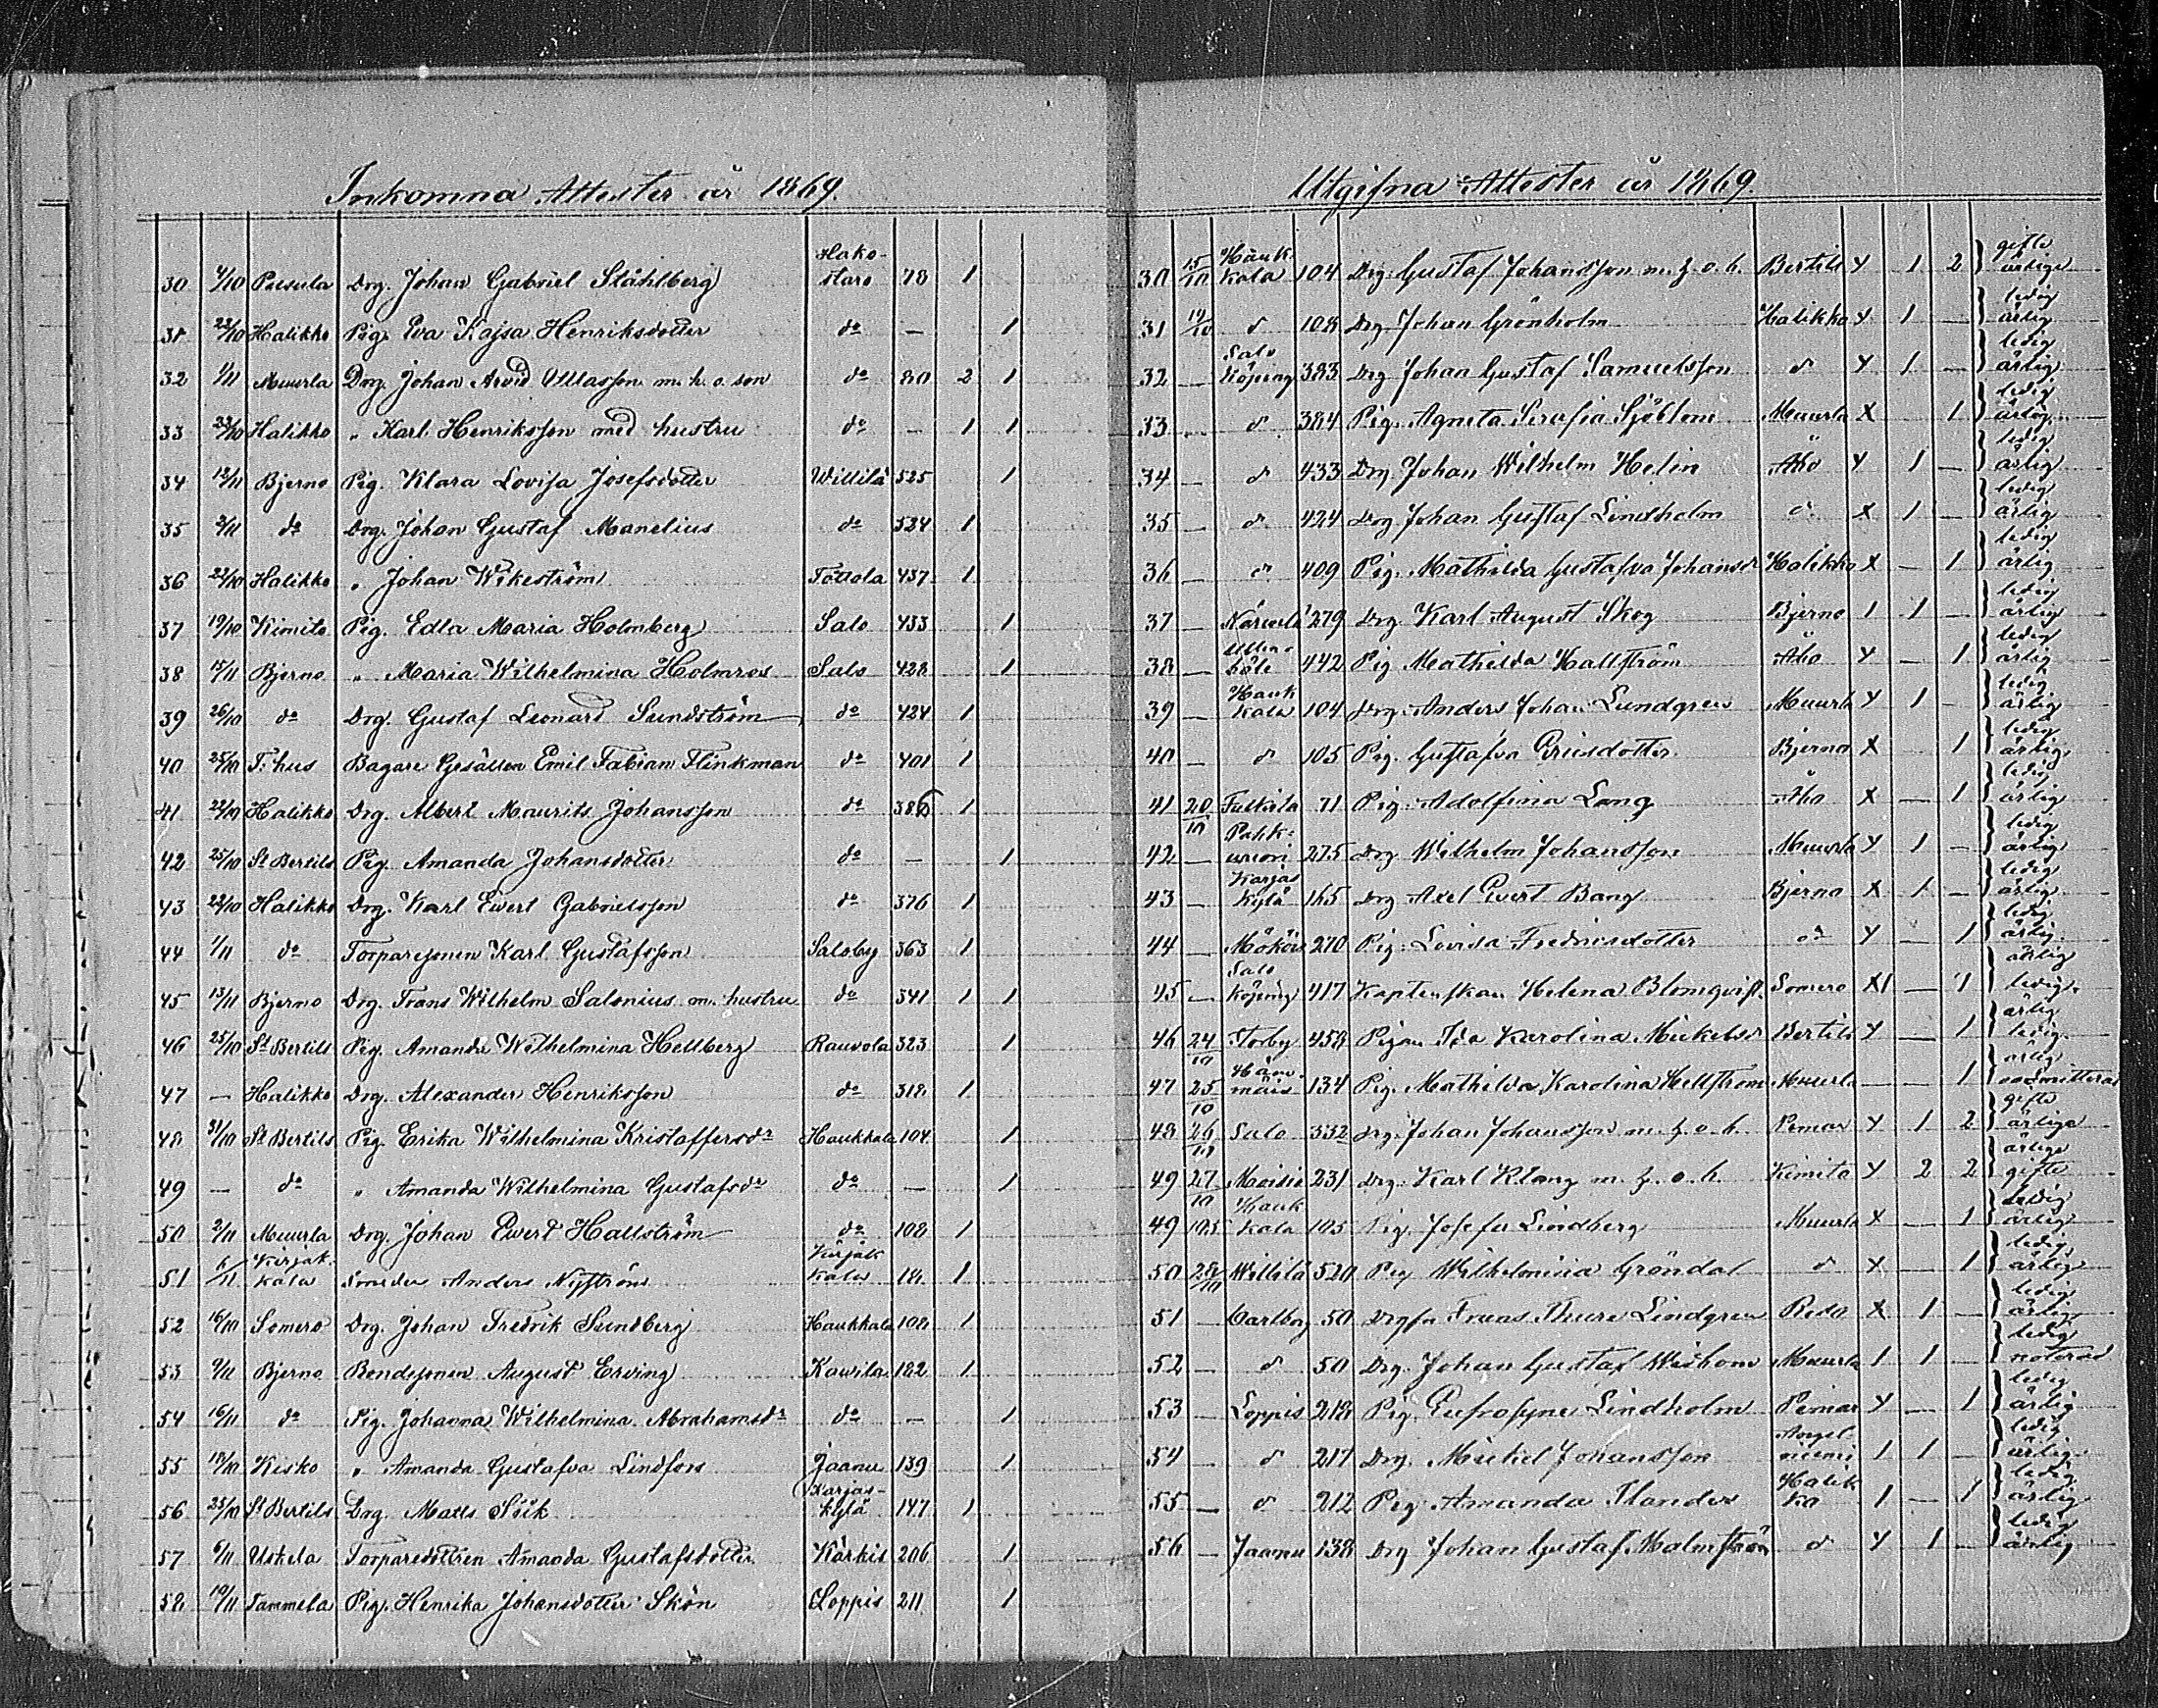 Inkomna Attester år 1869.
30 4/10 Pusula Drg. Johan Gabriel Ståhlberg Hakostaro 78 1
31 22/10 Halikko Pig. Eva Kajsa Henriksdotter do — 1
32 1/11 Muurla Drg. Johan Arvid Ullasson m. h. o. son do 80 2 1
33 22/10 Halikko " Karl Henriksson med hustru do — 1 1
34 12/11 Bjerno Pig. Klara Lovisa Josefsdotter Willilä 525 1
35 2/11 do Drg. Johan Gustaf Manelius do 524 1
36 22/10 Halikko " Johan Wikeström Tottola 437 1
37 19/10 Kimito Pig. Edla Maria Holmberg Salo 433 1
38 15/11 Bjerno " Maria Wilhelmina Holmros Salo 428 1
39 26/10 do Drg. Gustaf Leonard Sundström do 424 1
40 25/10 T:hus Bagare Gesällen Emil Fabian Flinkman do 401 1
41 22/10 Halikko Drg. Albert Maurits Johansson do 386 1
42 25/10 St Bertils Pig. Amanda Johansdotter do — 1
43 22/10 Halikko Drg. Karl Ewert Gabrielsson do 376 1
44 1/11 do Torparesonen Karl Gustafsson Saloby 363 1
45 13/11 Bjerno Drg. Frans Wilhelm Salonius m. hustru do 341 1 1
46 25/10 St Bertils Pig. Amanda Wilhelmina Hellberg Rauvola 323 1
47 — Halikko Drg. Alexander Henriksson do 318 1
48 31/10 St Bertils Pig. Erika Wilhelmina Kristaffersdr Haukkala 104 1
49 — do " Amanda Wilhelmina Gustafsdr do — 1
50 2/11 Muurla Drg. Johan Ewert Hallström do 108 1
51 6/11 Kirjakkala Smeden Anders Nyström Kirjakkala 18 1
52 16/10 Somero Drg. Johan Fredrik Sundberg Haukkala 108 1
53 9/11 Bjerno Bondesonen August Erving Kavila 182 1
54 16/11 do Pig. Johanna Wilhelmina Abrahamsdr do — 1
55 18/10 Kisko " Amanda Gustafva Lindfors Jaanu 139 1
56 25/10 St Bertils Drg. Matts Sök Karjaskylä 147 1
57 6/11 Uskela Torparedottren Amanda Gustafsdotter Kärkis 206 1
58 10/11 Tammela Pig. Henrika Johansdotter Skön Loppis 211 1
Utgifna Attester år 1869.
30 15/10 Haukkala 104 Drg. Gustaf Johansson m. f. o. b. Bertils x 1 2 gifte ärlige
31 19/10 d 108 Drg. Johan Grönholm Halikko x 1 — ledig ärlig
32 — Salo Köping 383 Drg Johan Gustaf Samuelsson d x 1 — ledig ärlig
33 — d 384 Pig. Agneta Serafia Sjöblom Muurla x 1 ledig ärlig
34 — d 433 Drg. Johan Wilhelm Helin Åbo x 1 — ledig ärlig
35 — d 424 Drg Johan Gustaf Lindholm d x 1 — ledig ärlig
36 — d 409 Pig. Mathilda Gustafva Johansdr Halikko x — 1 ledig ärlig
37 — 279 Drg Karl August Skog Bjerno 1 1 — ledig ärlig
38 — 442 Pig Mathilda Hallström Åbo x — 1 ledig ärlig
39 — Haukkala 104 Drg. Anders Johan Lundgren Muurla x 1 — ledig ärlig
40 — d 105 Pig. Gustafva Grusdotter Bjerno x 1 ledig ärlig
41 20/10 Fulkila 71 Pig. Adolfina Lang Åbo x — 1 ledig ärlig
42 — 275 Drg Wilhelm Johansson Muurla x 1 — ledig ärlig
43 — Karjaskylä 165 Drg Axel Evert Bang Bjerno x 1 — ledig ärlig
44 — 270 Pig. Lovisa Fredriksdotter do x — 1 ledig ärlig
45 — Salo Köping 417 Kaptenskan Helena Blomqvist Somero x1 — 1 ärlig ledig
46 24/10 Storby 458 Pigan Ida Karolina Mickelsdr Bertils x — 1 ärlig ledig
47 25/10 134 Pig. Mathilda Karolina Hellström Muurla — — 1 ärlig
48 26/10 Salo 332 Drg. Johan Johansson m. f. o. b. Pemar x 1 2 gifte ärlige
49 27/10 Moisio 231 Drg. Karl Klang m. f. o. b. Kimito x 2 2 ärlige gifte
49 105 Haukkala 105 Pig. Josefa Lindberg Muurla x — 1 ledig ärlig
50 28/10 Willilä 520 Pig Wilhelmina Gröndal d x — 1 ledig ärlig
51 Carlboj 50 Frans Thure Lindgren x 1 — ledig ärlig
52 — d 50 Drg. Johan Gustaf Widbom Muurla 1 1 — ledig noterad
53 — Loppis 218 Pig. Eufrosyne Lindholm Pemar x — 1 ledig ärlig
54 — d 217 Drg. Mickel Johansson Angelniemi 1 1 — ledig ärlig
55 — d 212 Pig Amanda Flander Halikko 1 — 1 ledig ärlig
56 — Jaanu 138 Drg Johan Gustaf Malmström d x 1 — ledig ärlig